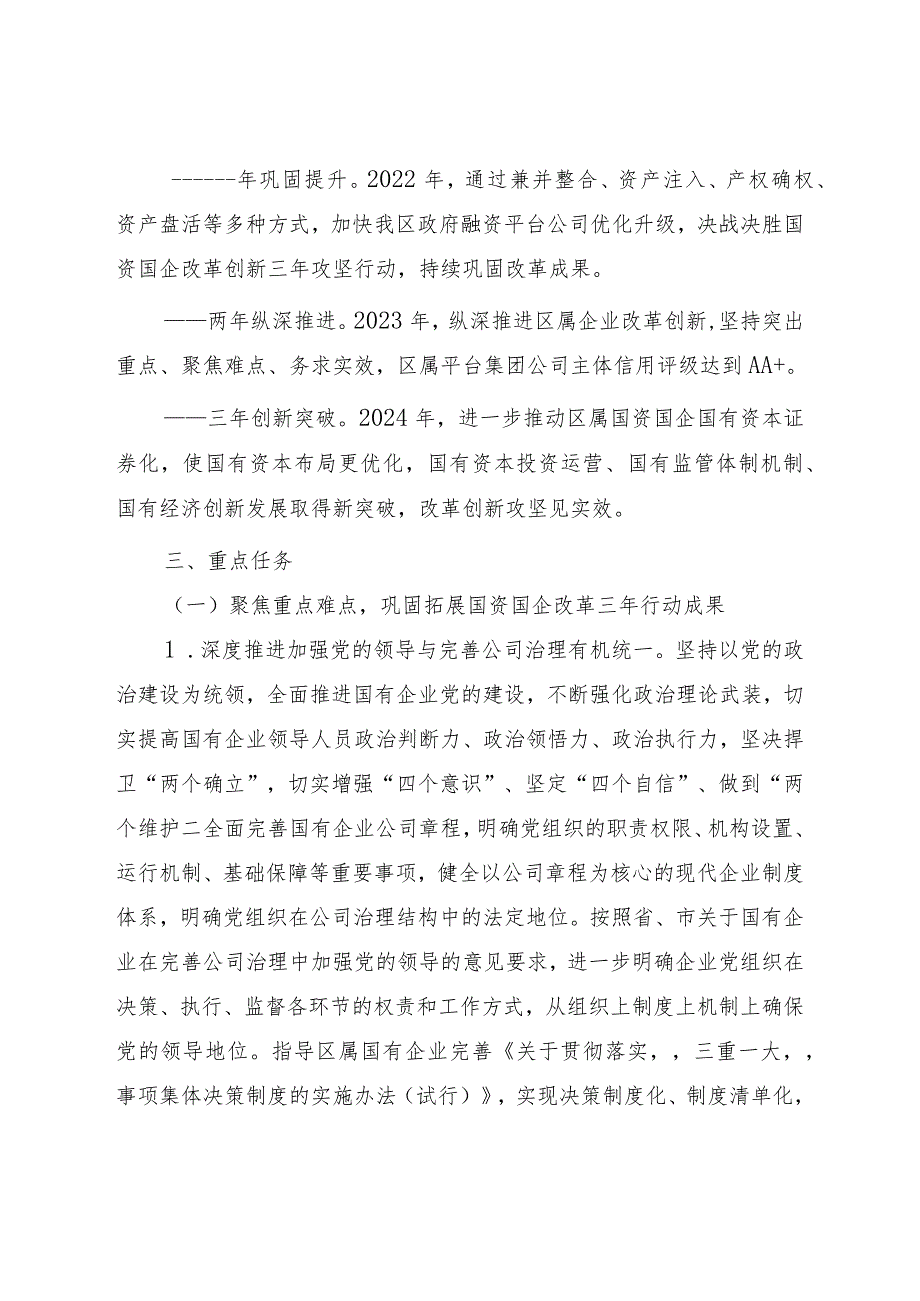 ------年巩固提升。2022年，通过兼并整合、资产注入、产权确权、
资产盘活等多种方式，加快我区政府融资平台公司优化升级，决战决胜国
资国企改革创新三年攻坚行动，持续巩固改革成果。
——两年纵深推进。2023年，纵深推进区属企业改革创新,坚持突出
重点、聚焦难点、务求实效，区属平台集团公司主体信用评级达到AA+。
——三年创新突破。2024年，进一步推动区属国资国企国有资本证
券化，使国有资本布局更优化，国有资本投资运营、国有监管体制机制、
国有经济创新发展取得新突破，改革创新攻坚见实效。
三、重点任务
（一）聚焦重点难点，巩固拓展国资国企改革三年行动成果
1 .深度推进加强党的领导与完善公司治理有机统一。坚持以党的政
治建设为统领，全面推进国有企业党的建设，不断强化政治理论武装，切
实提高国有企业领导人员政治判断力、政治领悟力、政治执行力，坚决捍
卫“两个确立”，切实增强“四个意识”、坚定“四个自信”、做到“两
个维护二全面完善国有企业公司章程，明确党组织的职责权限、机构设置、
运行机制、基础保障等重要事项，健全以公司章程为核心的现代企业制度
体系，明确党组织在公司治理结构中的法定地位。按照省、市关于国有企
业在完善公司治理中加强党的领导的意见要求，进一步明确企业党组织在
决策、执行、监督各环节的权责和工作方式，从组织上制度上机制上确保
党的领导地位。指导区属国有企业完善《关于贯彻落实，，三重一大，，
事项集体决策制度的实施办法（试行）》，实现决策制度化、制度清单化，